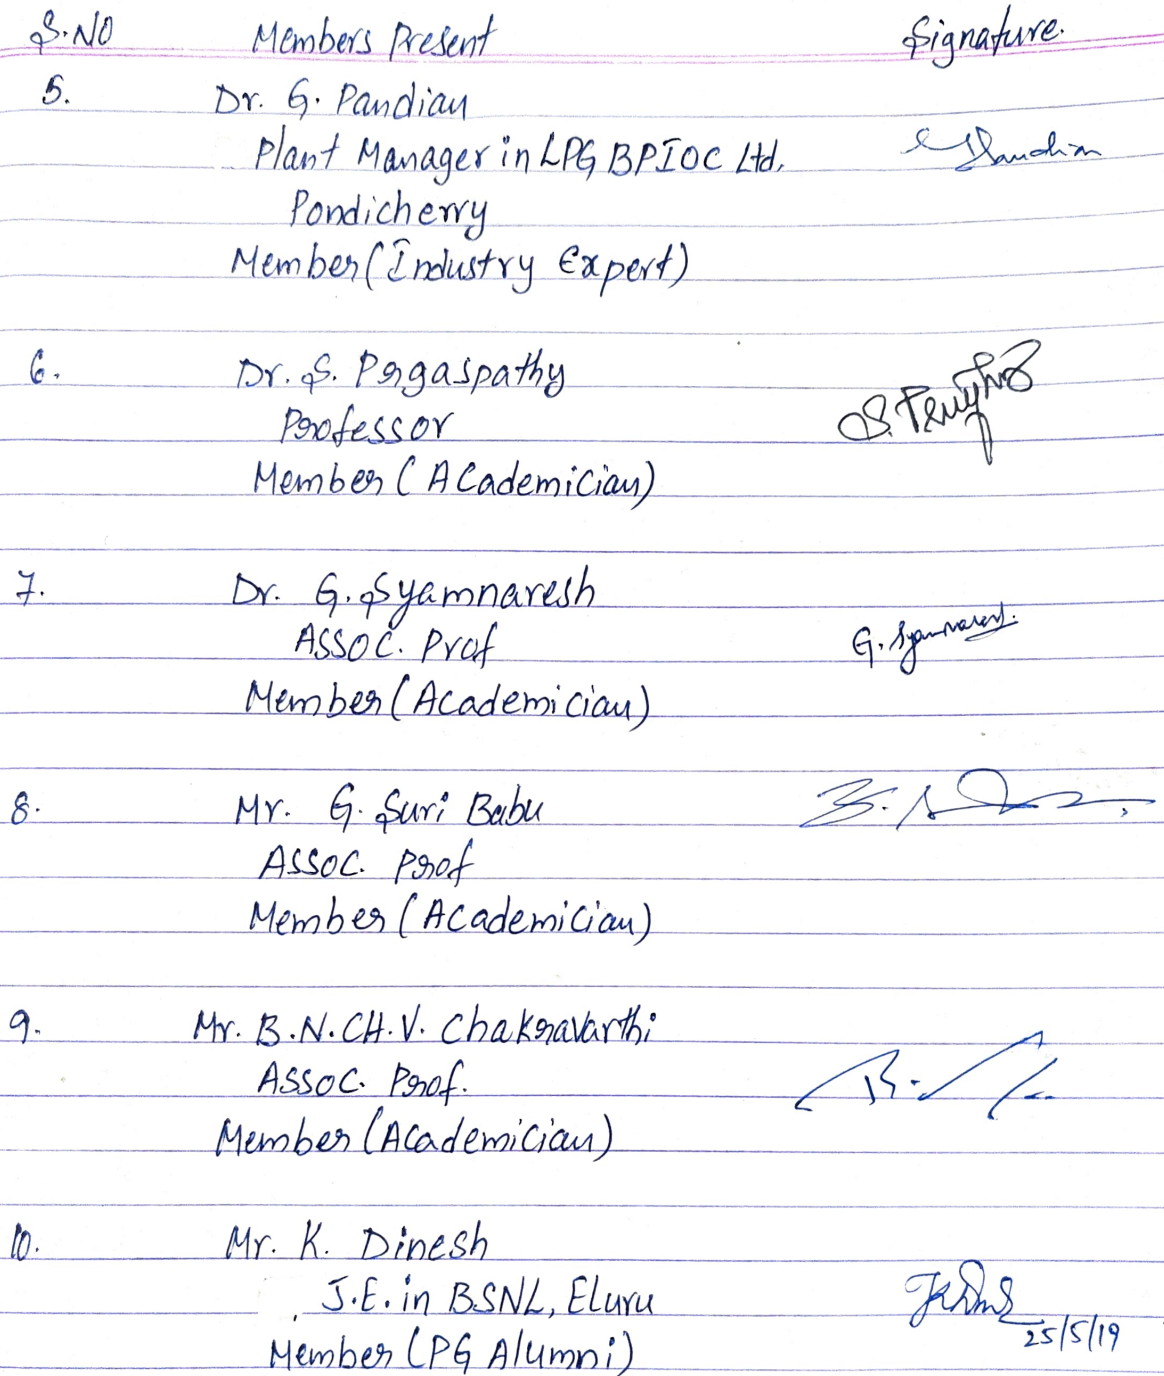 S.NO Members Present Signature.
5. Dr. G. Pandian
Plant Manager in LPG BPIOC Ltd,
Pondicherry
Member (Industry Expert)
6. Dr. S. Prgaspathy
Professor
Member (Academician)
7. Dr. G. Syamnaresh
Assoc. Prof
G. Syamnaresh.
Member (Academician)
8. Mr. G. Suri Babu
Assoc. Prof
Member (Academician)
9. Mr. B.N.CH.V. Chakravarthi
Assoc. Prof.
Member (Academician)
10. Mr. K. Dinesh
J.E. in BSNL, Eluru
25/5/19
Member (PG Alumni)